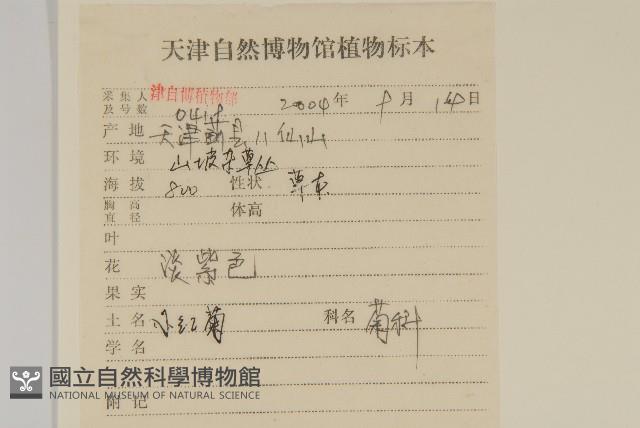 天津自然博物馆植物标本
采集人及号数 津自博植物部 2004年 9月 14日
产地 天津蓟县八仙山
环境 山坡杂草丛
海拔 800 性状 草本
胸高直径 体高
叶
花 淡紫色
果实
土名 小红菊 科名 菊科
学名
國立自然科學博物館
NATIONAL MUSEUM OF NATURAL SCIENCE
附记